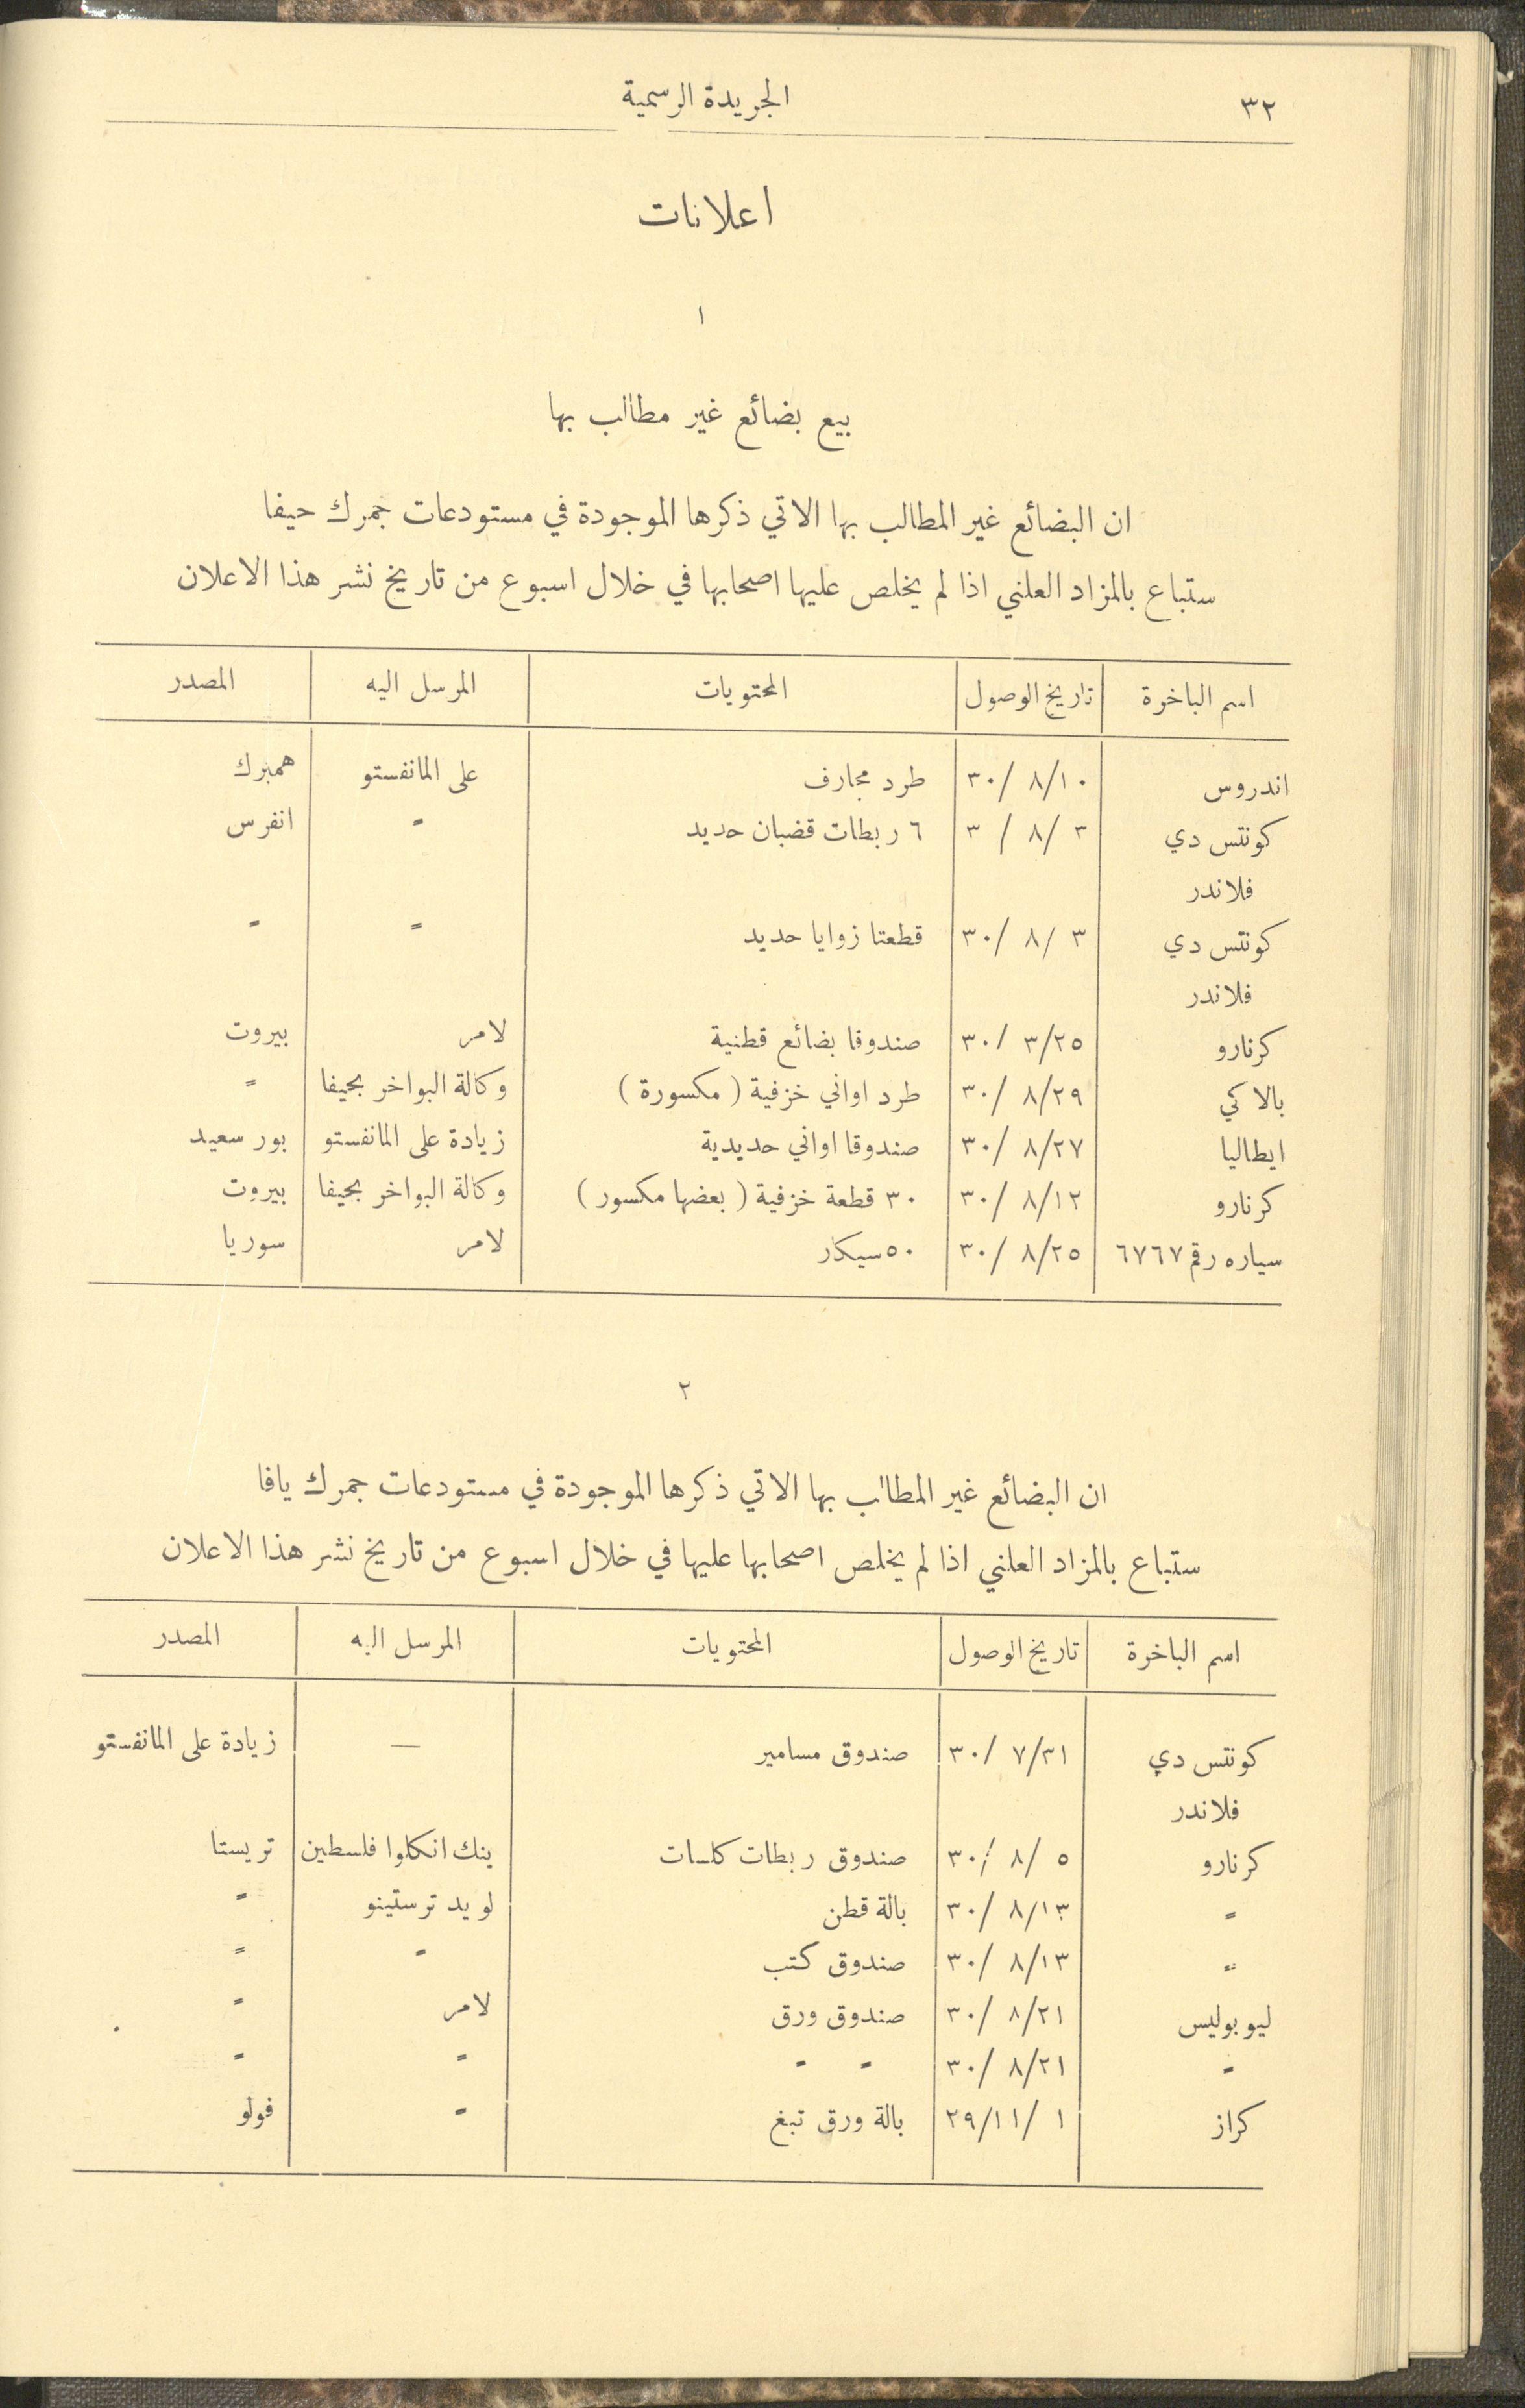 ٣٢ الجريدة الرسمية
اعلانات
١
بيع بضائع غير مطالب بها
ان البضائع غير المطالب بها الاتي ذكرها الموجودة في مستودعات جمرك حيفا
ستباع بالمزاد العلني اذا لم يخلص عليها اصحابها في خلال اسبوع من تاريخ نشر هذا الاعلان
اسم الباخرة تاريخ الوصول المحتويات المرسل اليه المصدر
اندروس ١٠/٨ /٣٠ طرد مجارف على المانفستو همبرك
كونتس دي ٣ /٨ / ٣ ٦ ربطات قضبان حديد " انفرس
فلاندر
كونتس دي ٣ /٨ /٣٠ قطعتا زوايا حديد " "
فلاندر
كرنارو ٢٥/٣ /٣٠ صندوقا بضائع قطنية لامر بيروت
بالاكي ٢٩/٨ /٣٠ طرد اواني خزفية ( مكسورة ) وكالة البواخر بحيفا "
ايطاليا ٢٧/٨ /٣٠ صندوقا اواني حديدية زيادة على المانفستو بور سعيد
كرنارو ١٢/٨ /٣٠ ٣٠ قطعة خزفية ( بعضها مكسور ) وكالة البواخر بحيفا بيروت
سياره رقم ٦٧٦٧ ٢٥/٨ /٣٠ ٥٠ سيكار لامر سوريا
٢
ان البضائع غير المطالب بها الاتي ذكرها الموجودة في مستودعات جمرك يافا
ستباع بالمزاد العلني اذا لم يخلص اصحابها عليها في خلال اسبوع من تاريخ نشر هذا الاعلان
اسم الباخرة تاريخ الوصول المحتويات المرسل اليه المصدر
كونتس دي ٣١/٧ /٣٠ صندوق مسامير — زيادة على المانفستو
فلاندر
كرنارو ٥ /٨ /٣٠ صندوق ربطات كلسات بنك انكلوا فلسطين تريستا
" ١٣/٨ /٣٠ بالة قطن لويد ترستينو "
" ١٣/٨ /٣٠ صندوق كتب " "
ليوبوليس ٢١/٨ /٣٠ صندوق ورق لامر "
" ٢١/٨ /٣٠ " " " "
كراز ١ /٢٩/١١ بالة ورق تبغ " فولو